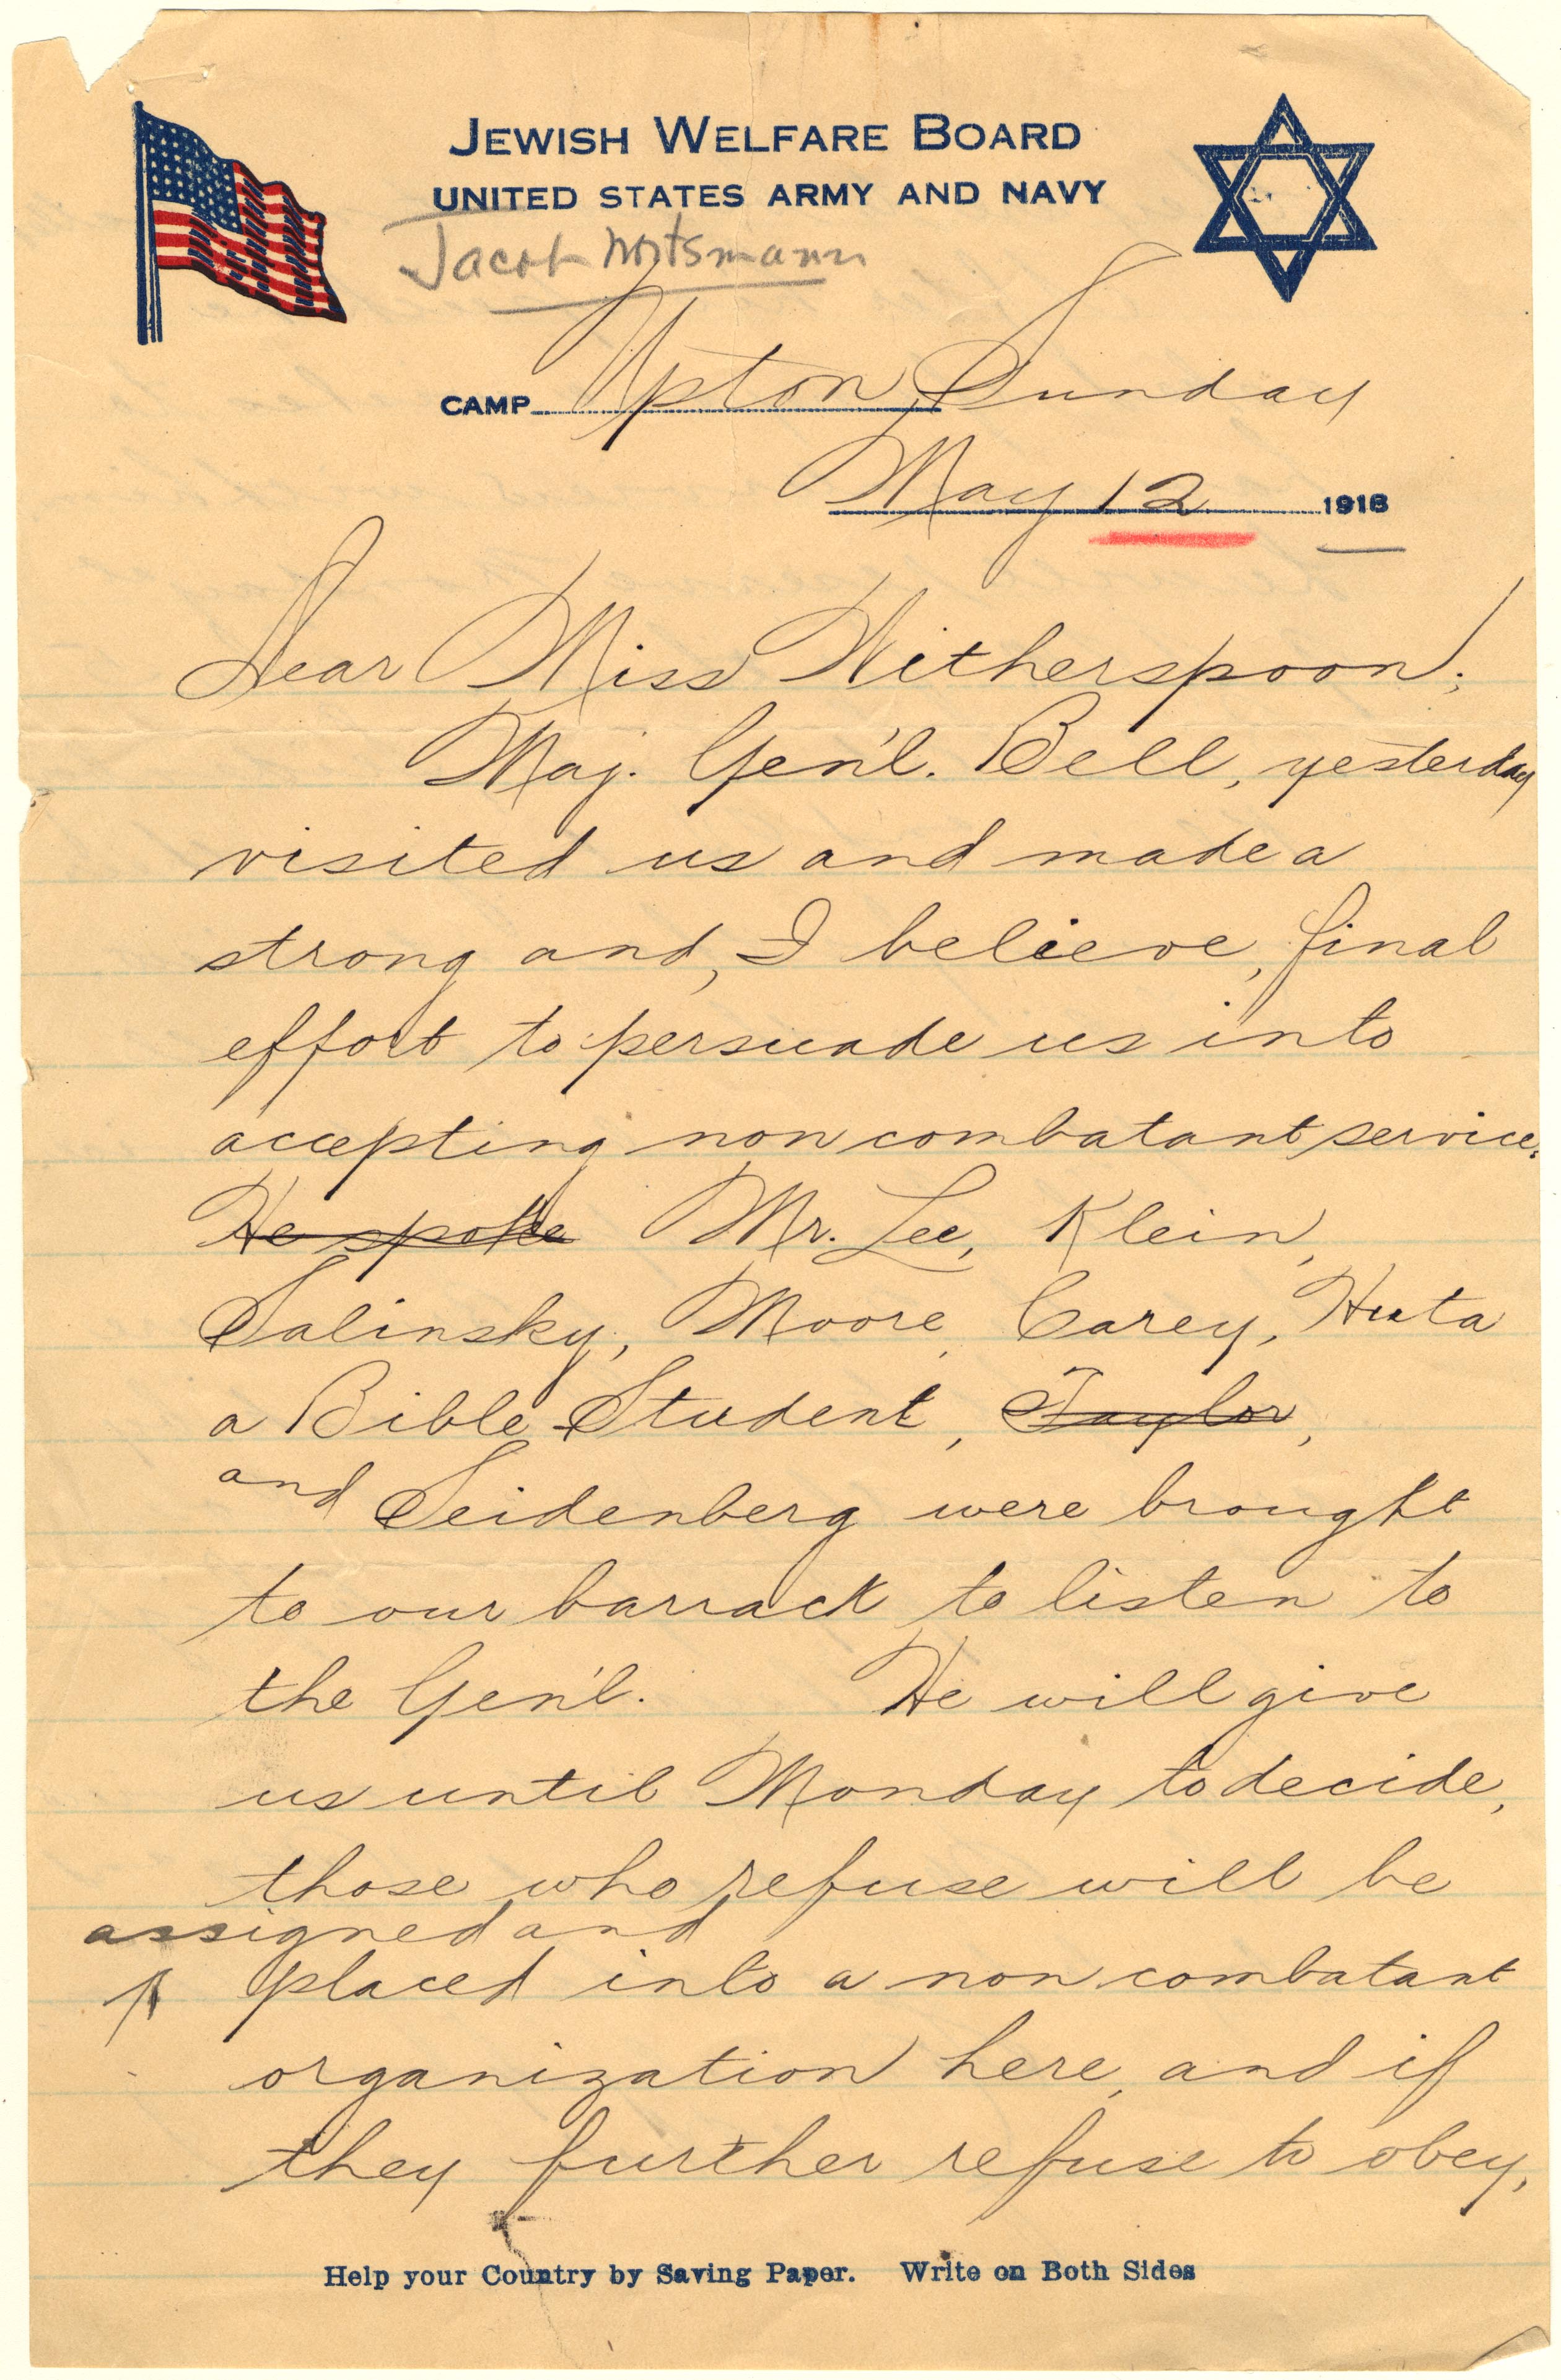 JEWISH WELFARE BOARD
UNITED STATES ARMY AND NAVY
Jacob Wortsmann
CAMP Upton, Sunday
May 12 1918
Dear Miss Witherspoon;
Maj. Gen'l. Bell, yesterday
visited us and made a
strong and, I believe, final
effort to persuade us into
accepting non combatant service.
He spoke Mr. Lee, Klein,
Salinsky, Moore, Carey, Huta
a Bible Student, Taylor,
and Seidenberg were brought
to our barrack to listen to
the Gen'l. He will give
us until Monday to decide,
those who refuse will be
assigned and
placed into a non combatant
organization here, and if
they further refuse to obey,
Help your Country by Saving Paper. Write on Both Sides